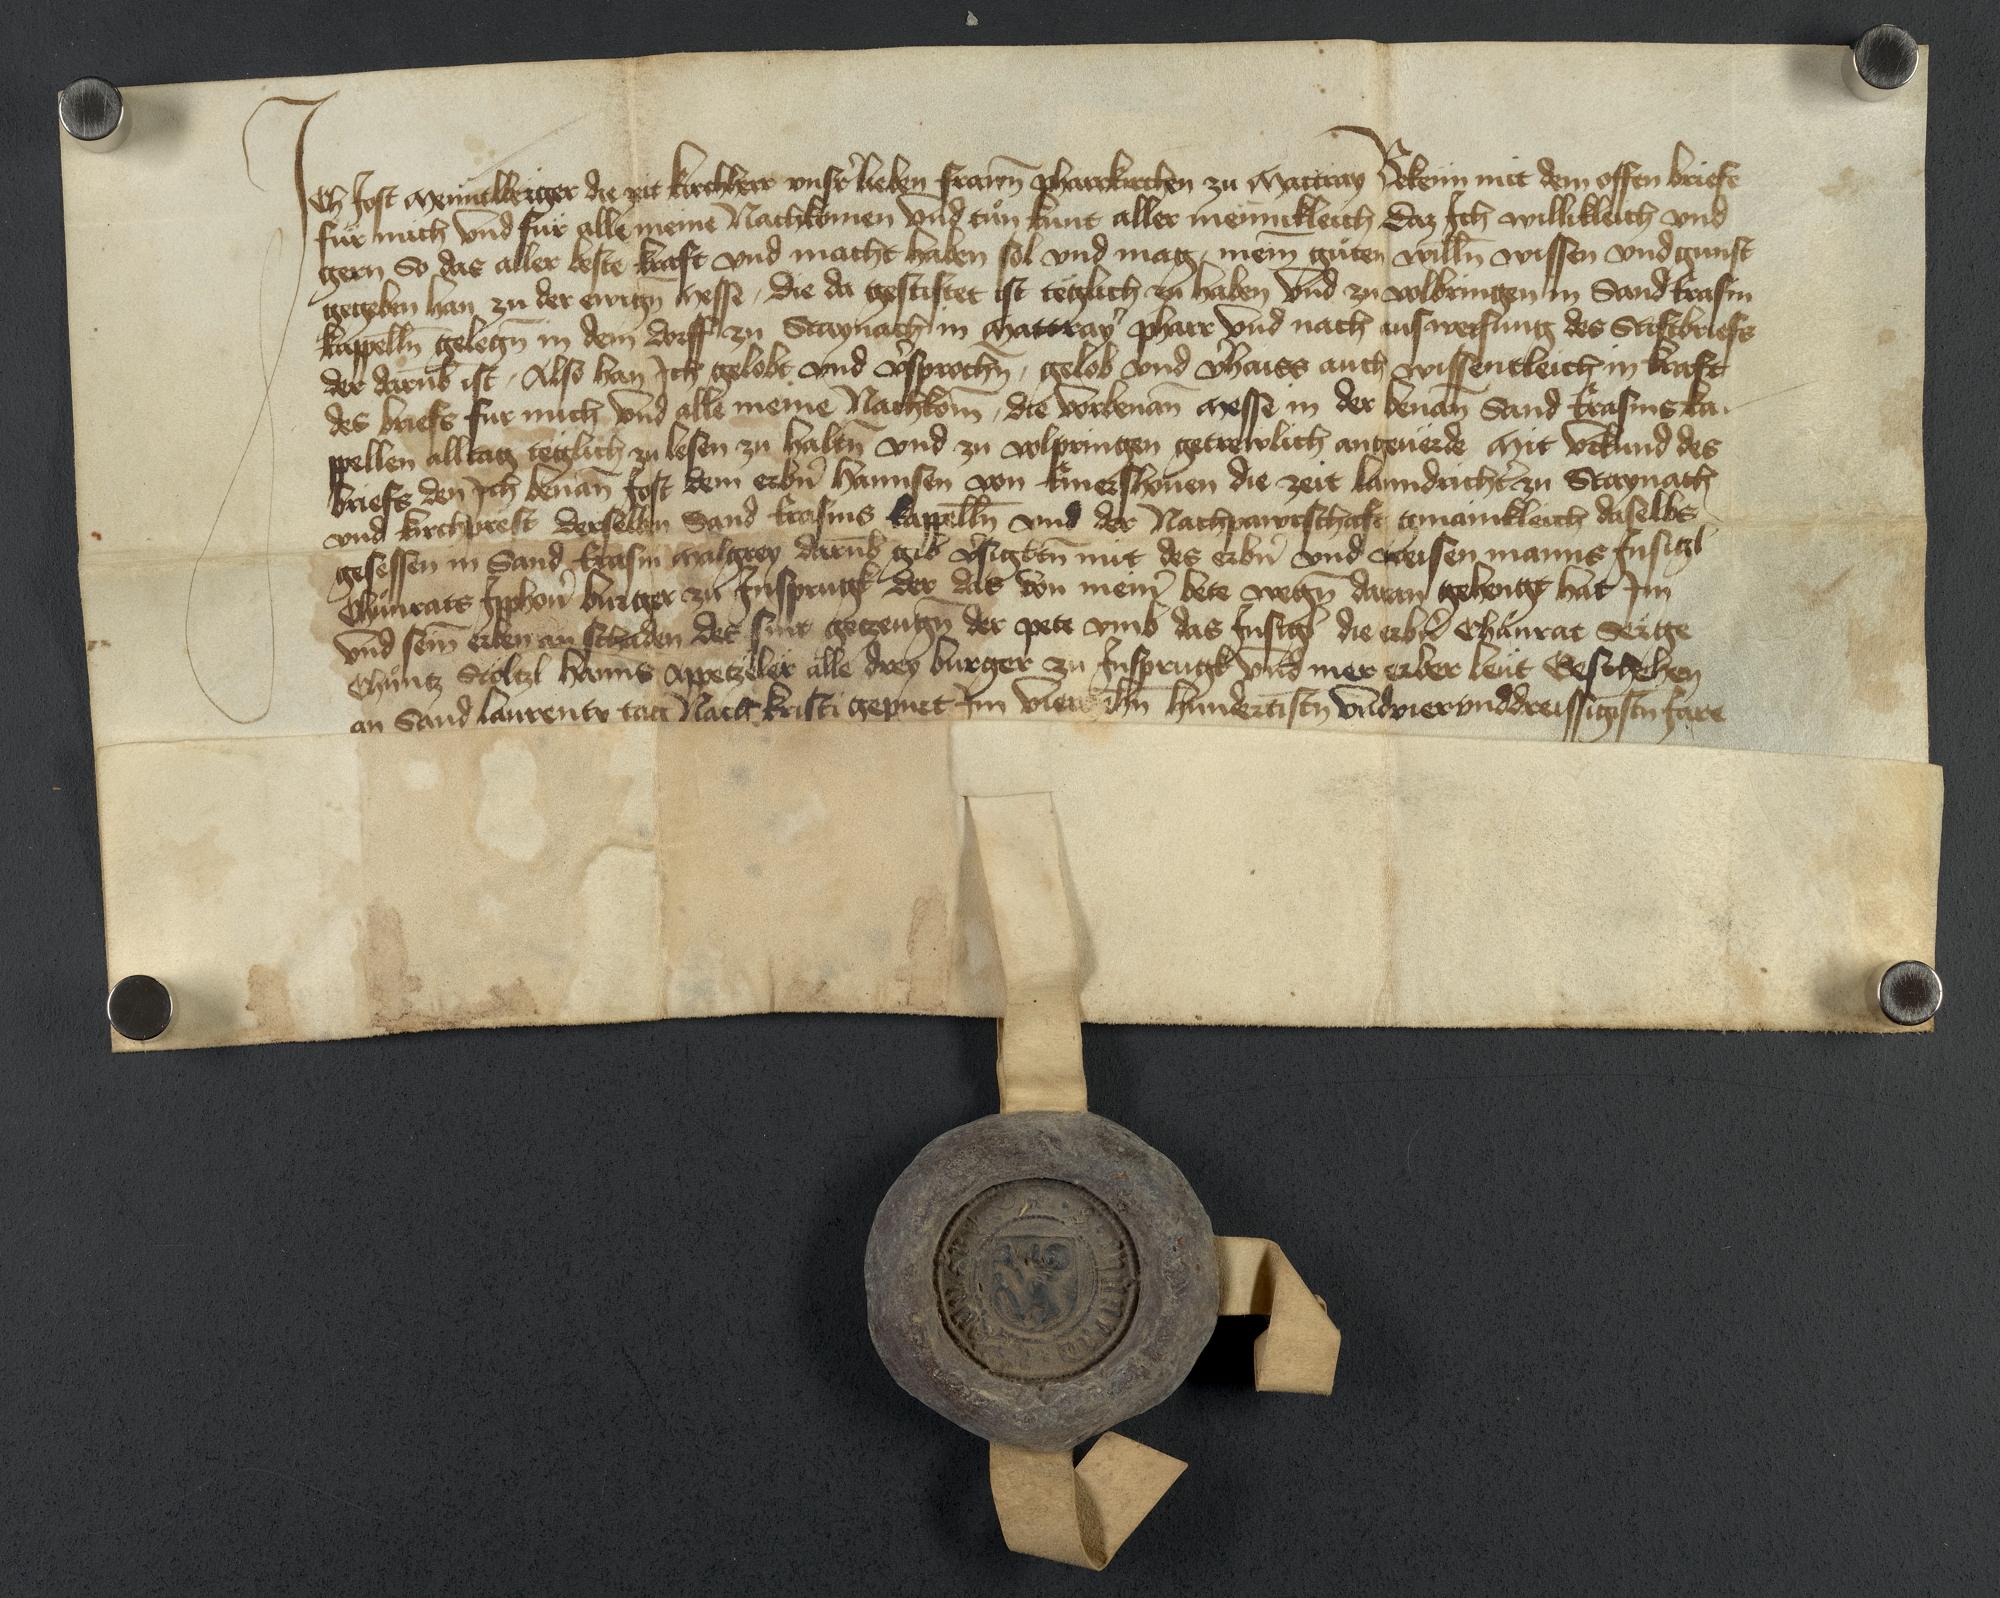 Ich Jost Menndlberger die zeit kirchherr vnsr̃ lieben frawñ pharrkirchen zu Mattray Bekenn mit dem offen briefe
für mich vnd für alle meine Nachkomen vnd tůn kunt aller mennikleich Daz Ich willikleich vnd
gern So das aller beste kraft vnd macht haben sol vnd mag, mein̄ gůten willñ wissen vnd gunst
gegeben han zu der ewign̄ Messe, die da gestiftet ist teglich zu haben vnd zu volbringen in Sand Erasm
kappellñ gelegn̄ in dem dorff zu Staynach in Mattrayr̃ pharr vnd nach ausweisung des Stiftbriefs
der darūb ist, Also han Ich gelobt vnd ṽsprochn̄, gelob vnd ṽhaiss auch wissentleich in kraft
des briefs für mich vnd alle meine Nachkom̄, die vorbenan̄ Messe in der benan̄ Sand Erasms ka-
ppellen alltag teglich zu lesen zu haltn̄ vnd zu volpringen getrewlich angeuerde Mit vrkund des
briefs den Ich benan̄ Jost dem erbñ Hannsen von Ernershouen die zeit lanndrichtr̃ zu Staynach
vnd kirchprest derselben Sand Erasms kappellñ vnd der Nachpawrschaft gemainkleich daselbs
gesessen in Sand Erasm Malgrey darūb gib ṽsigltn̄ mit des erbñ vnd weisen manns Insigl
Chůnrats Ipphour̃ burger zu Insprugk der das von meinr̃ bete wegn̄ daran gehengt hat Im
vnd sein̄ erben an schaden des sint getzeugn̄ der pete vmb das Insigl die erbñ Chůnrat Sertge
Chůntz Stőltzl Hanns Appetzeler alle drey burger zu Insprugk vnd mer erber leüt Geschehen
an Sand laurentz tag Nach kristi gepurt Im vierczehn̄ hundertistn̄ vnd vierunddreissigistn̄ Jare